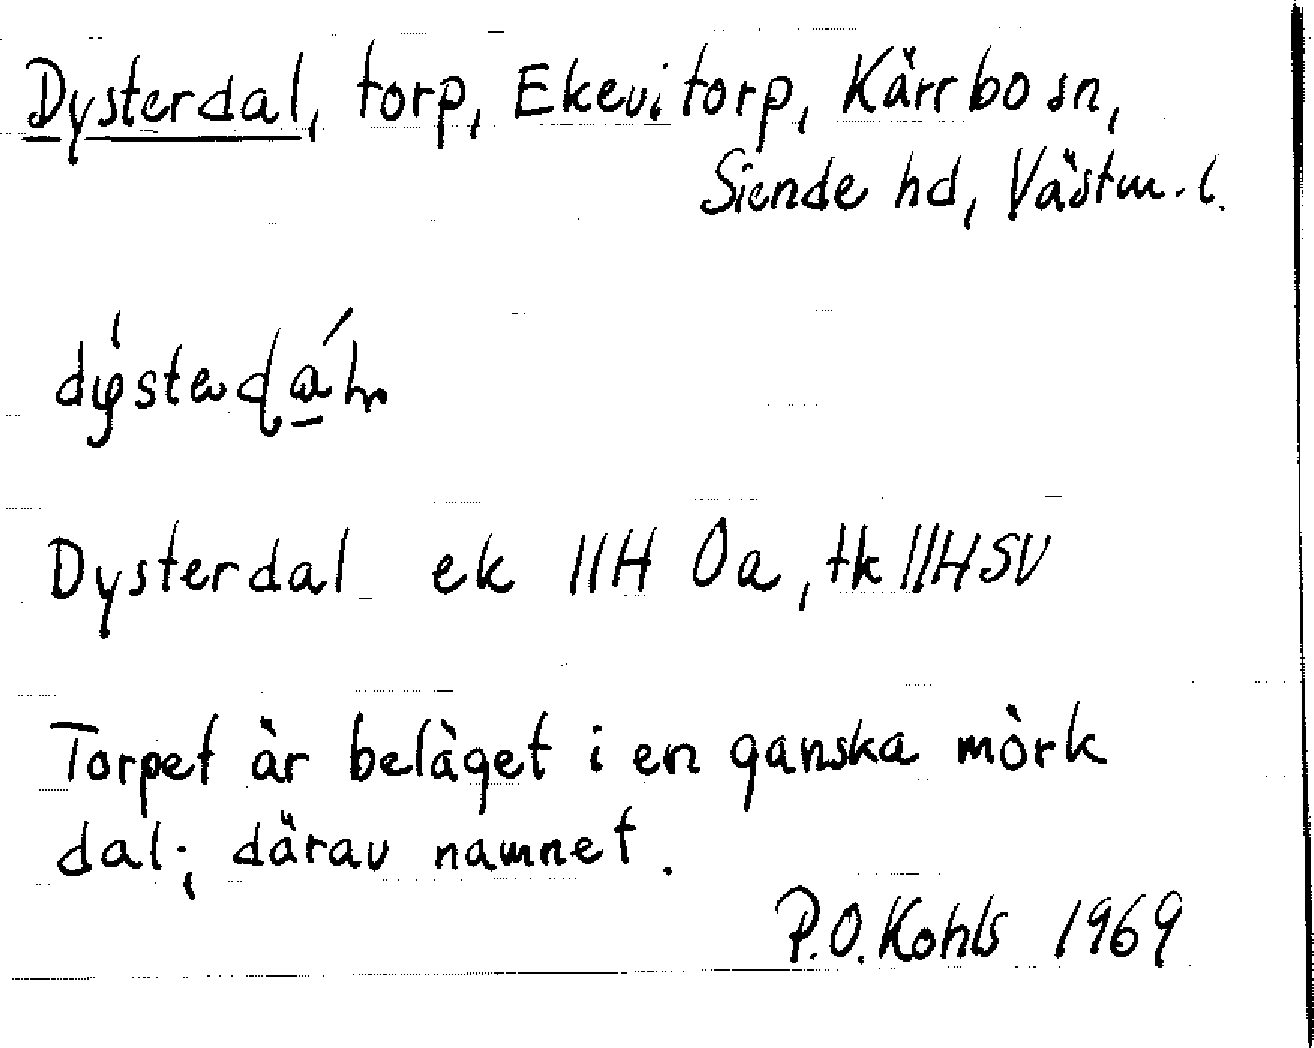 Dysterdal, torp, Ekevi torp, Kärrbo sn,
Siende hd, Västm. l.
Dysterdal ek 11H Öa, tk 11HSV
Torpet är beläget i en ganska mörk
dal; därav namnet.
P.O. Kohls 1969